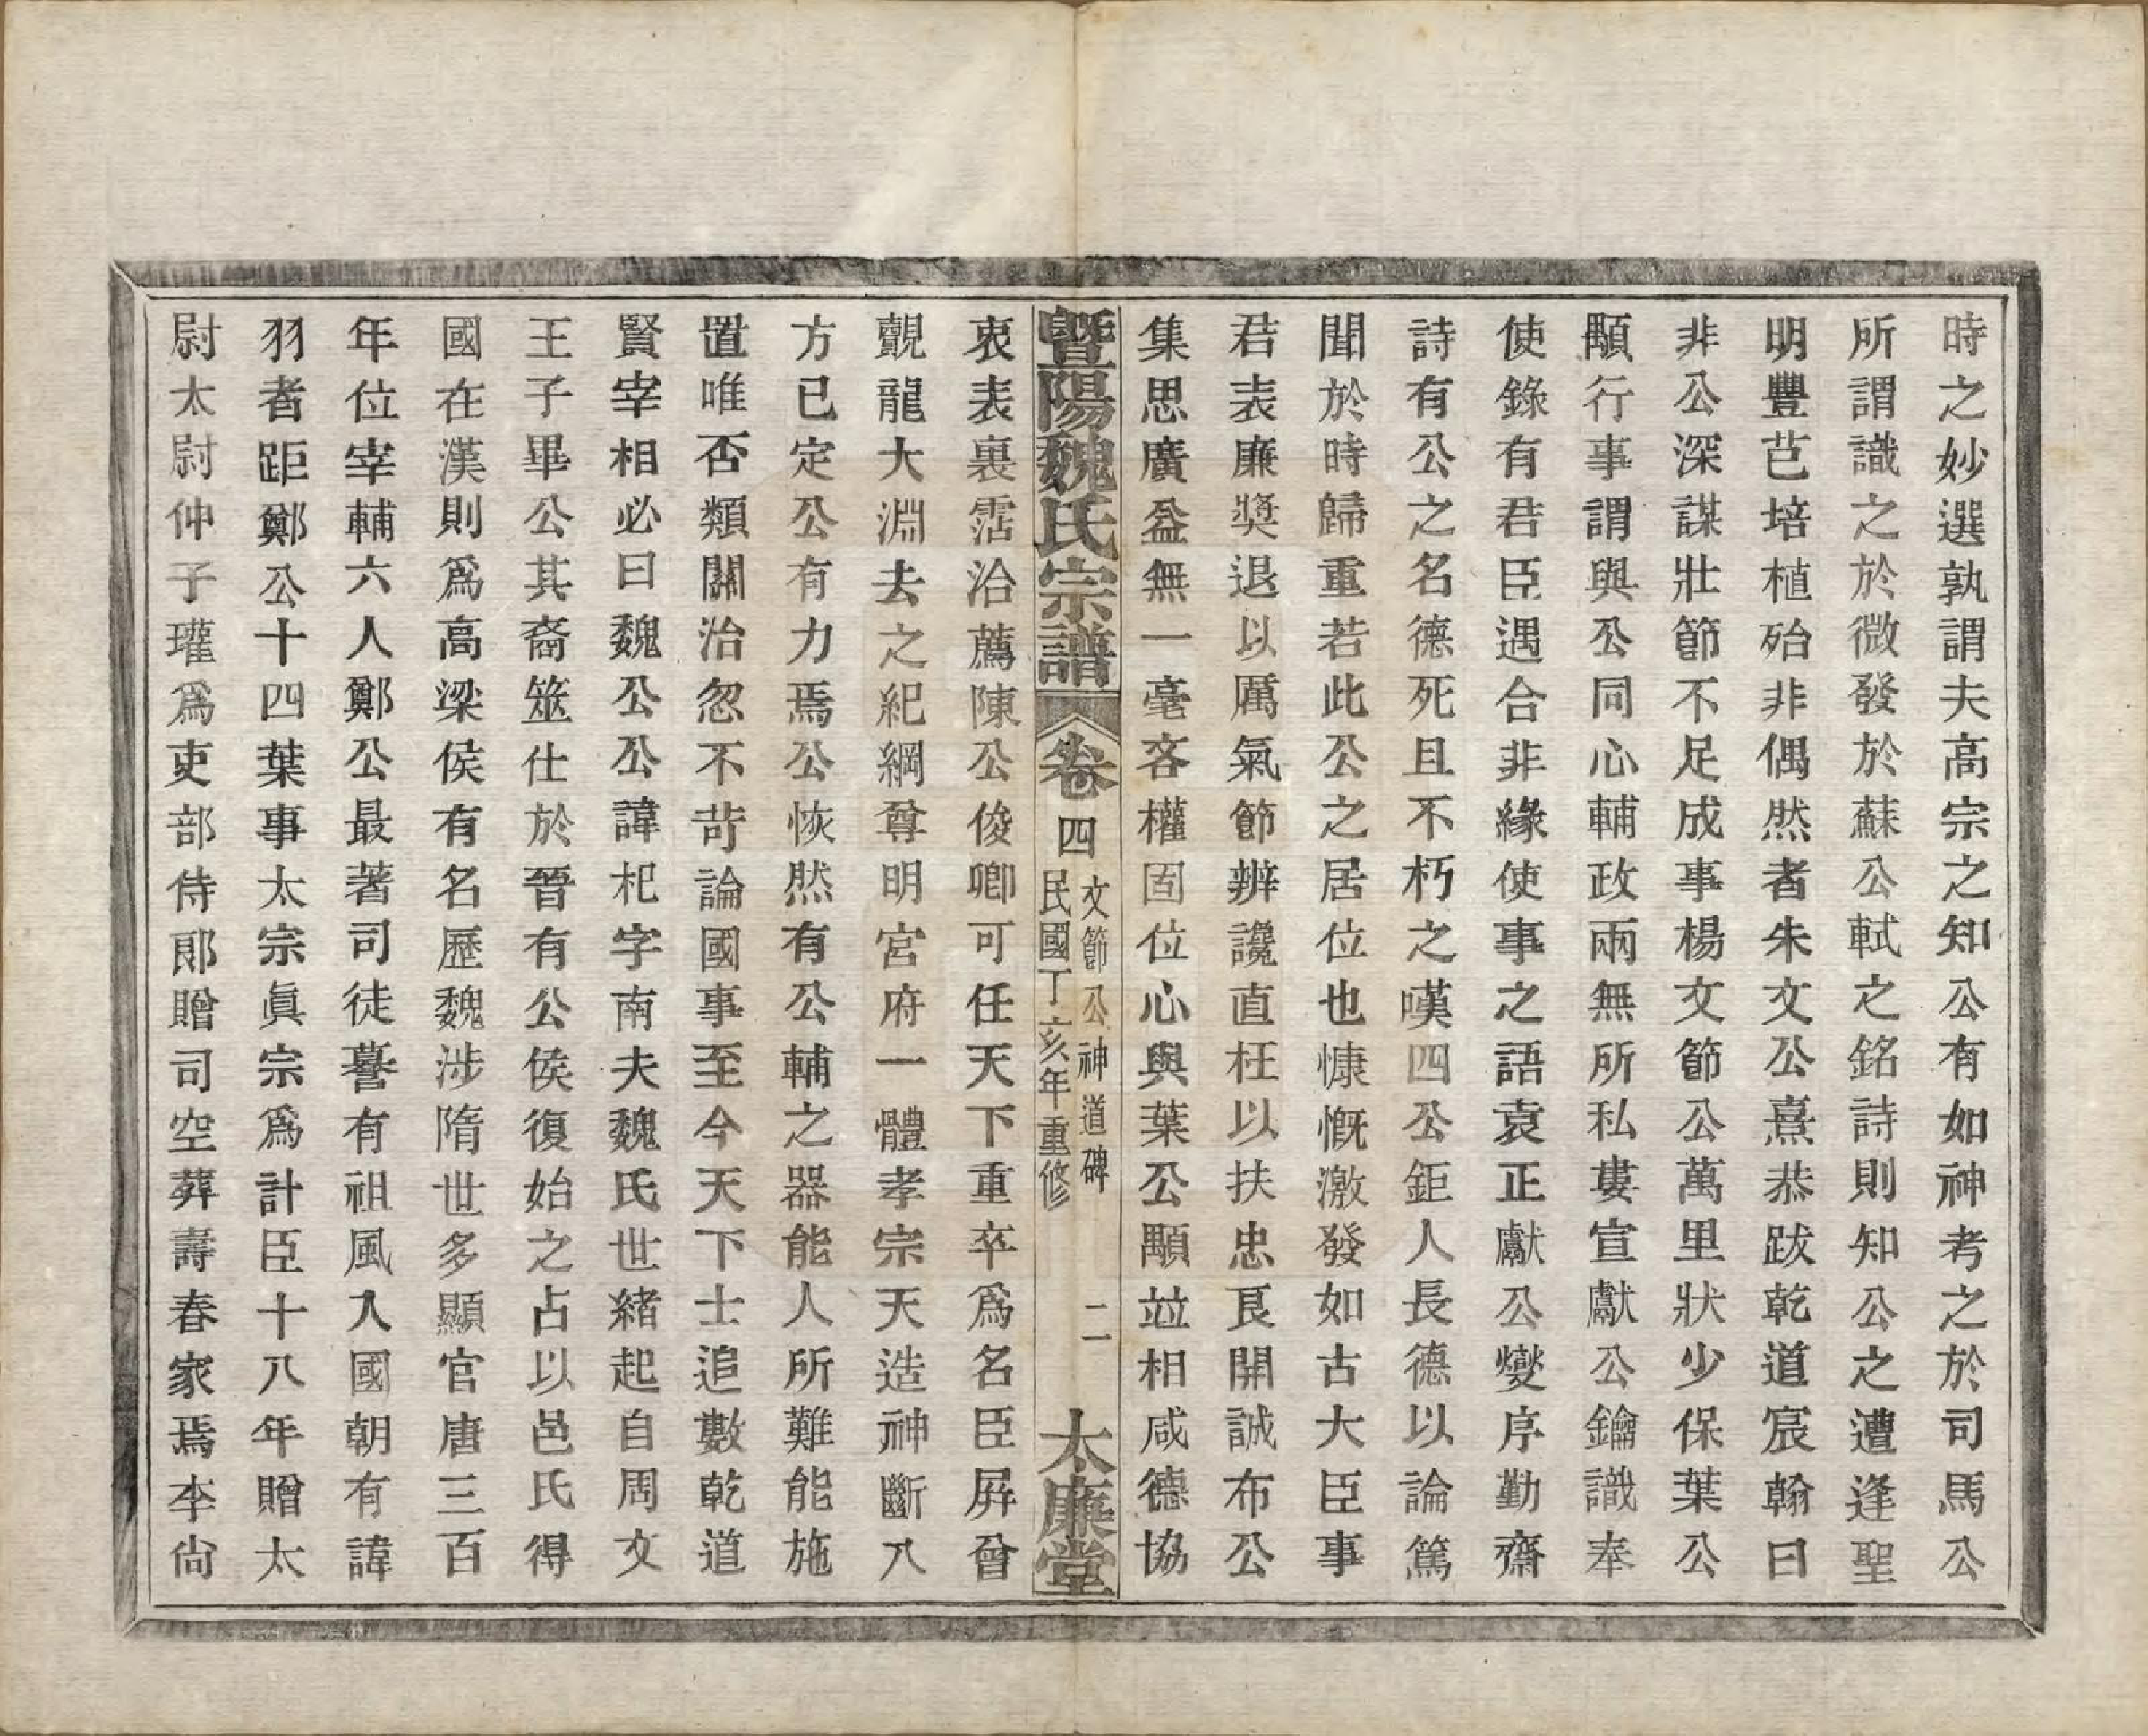 時之妙選孰謂夫高宗之知公有如神考之於司馬公
所謂識之於微發於蘇公軾之銘詩則知公之遭逢聖
明豐芑培植殆非偶然者朱文公熹恭跋乾道宸翰曰
非公深謀壯節不足成事楊文節公萬里狀少保葉公
顒行事謂與公同心輔政兩無所私婁宣獻公鑰識奉
使錄有君臣遇合非緣使事之語袁正獻公燮序勤齋
詩有公之名德死且不朽之嘆四公鉅人長德以論篤
聞於時歸重若此公之居位也慷慨激發如古大臣事
君表廉獎退以厲氣節辨讒直枉以扶忠良開誠布公
集思廣益無一毫吝權固位心與葉公顒竝相咸德協
暨陽魏氏宗譜
卷四
文節公神道碑
民國丁亥年重修
二
太廉堂
衷表裏霑洽薦陳公俊卿可任天下重卒爲名臣屛曾
覿龍大淵去之紀綱尊明宮府一體孝宗天造神斷八
方已定公有力焉公恢然有公輔之器能人所難能施
置唯否類關治忽不苛論國事至今天下士追數乾道
賢宰相必曰魏公公諱杞字南夫魏氏世緒起自周文
王子畢公其裔筮仕於晉有公侯復始之占以邑氏得
國在漢則爲高梁侯有名歷魏涉隋世多顯官唐三百
年位宰輔六人鄭公最著司徒謩有祖風入國朝有諱
羽者距鄭公十四葉事太宗眞宗爲計臣十八年贈太
尉太尉仲子瓘爲吏部侍郞贈司空葬壽春家焉李尙